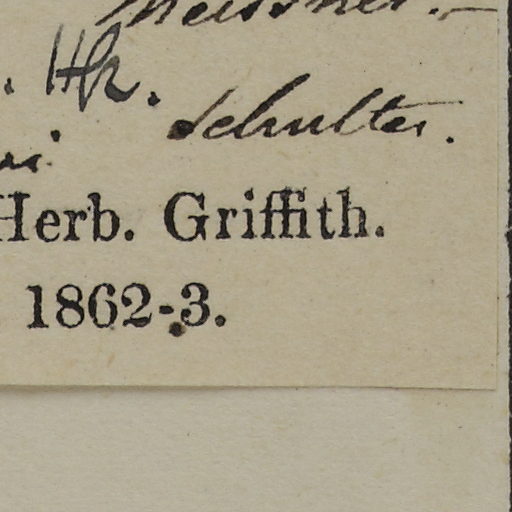 Meissner.-
Schultes.
Herb. Griffith.
1862-3.